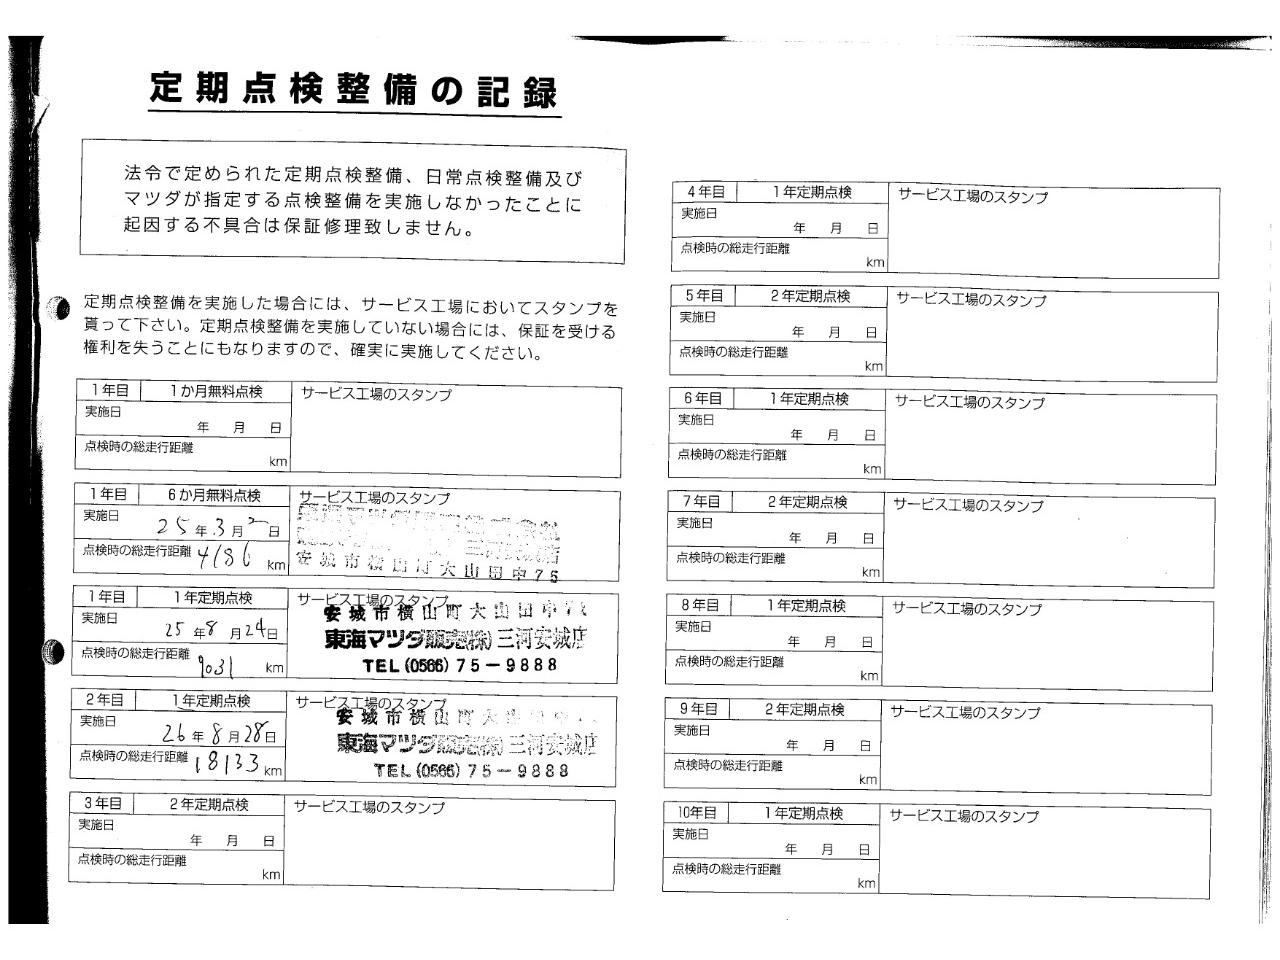 定期点検整備の記録
法令で定められた定期点検整備、日常点検整備及び
マツダが指定する点検整備を実施しなかったことに
起因する不具合は保証修理致しません。
定期点検整備を実施した場合には、サービス工場においてスタンプを
貰って下さい。定期点検整備を実施していない場合には、保証を受ける
権利を失うことにもなりますので、確実に実施してください。
1年目 1か月無料点検 サービス工場のスタンプ
実施日
年 月 日
点検時の総走行距離
km
1年目 6か月無料点検 サービス工場のスタンプ
実施日
25年3月2日
点検時の総走行距離 4186 km
安城市横山町大山田中75
1年目 1年定期点検 サービス工場のスタンプ
実施日
25年8月24日
点検時の総走行距離 9031 km
安城市横山町大山田中
東海マツダ販売(株)三河安城店
TEL(0566)75-9888
2年目 1年定期点検 サービス工場のスタンプ
実施日
26年8月28日
点検時の総走行距離 18133 km
安城市横山町大山田中
東海マツダ販売(株)三河安城店
TEL(0566)75-9888
3年目 2年定期点検 サービス工場のスタンプ
実施日
年 月 日
点検時の総走行距離
km
4年目 1年定期点検 サービス工場のスタンプ
実施日
年 月 日
点検時の総走行距離
km
5年目 2年定期点検 サービス工場のスタンプ
実施日
年 月 日
点検時の総走行距離
km
6年目 1年定期点検 サービス工場のスタンプ
実施日
年 月 日
点検時の総走行距離
km
7年目 2年定期点検 サービス工場のスタンプ
実施日
年 月 日
点検時の総走行距離
km
8年目 1年定期点検 サービス工場のスタンプ
実施日
年 月 日
点検時の総走行距離
km
9年目 2年定期点検 サービス工場のスタンプ
実施日
年 月 日
点検時の総走行距離
km
10年目 1年定期点検 サービス工場のスタンプ
実施日
年 月 日
点検時の総走行距離
km